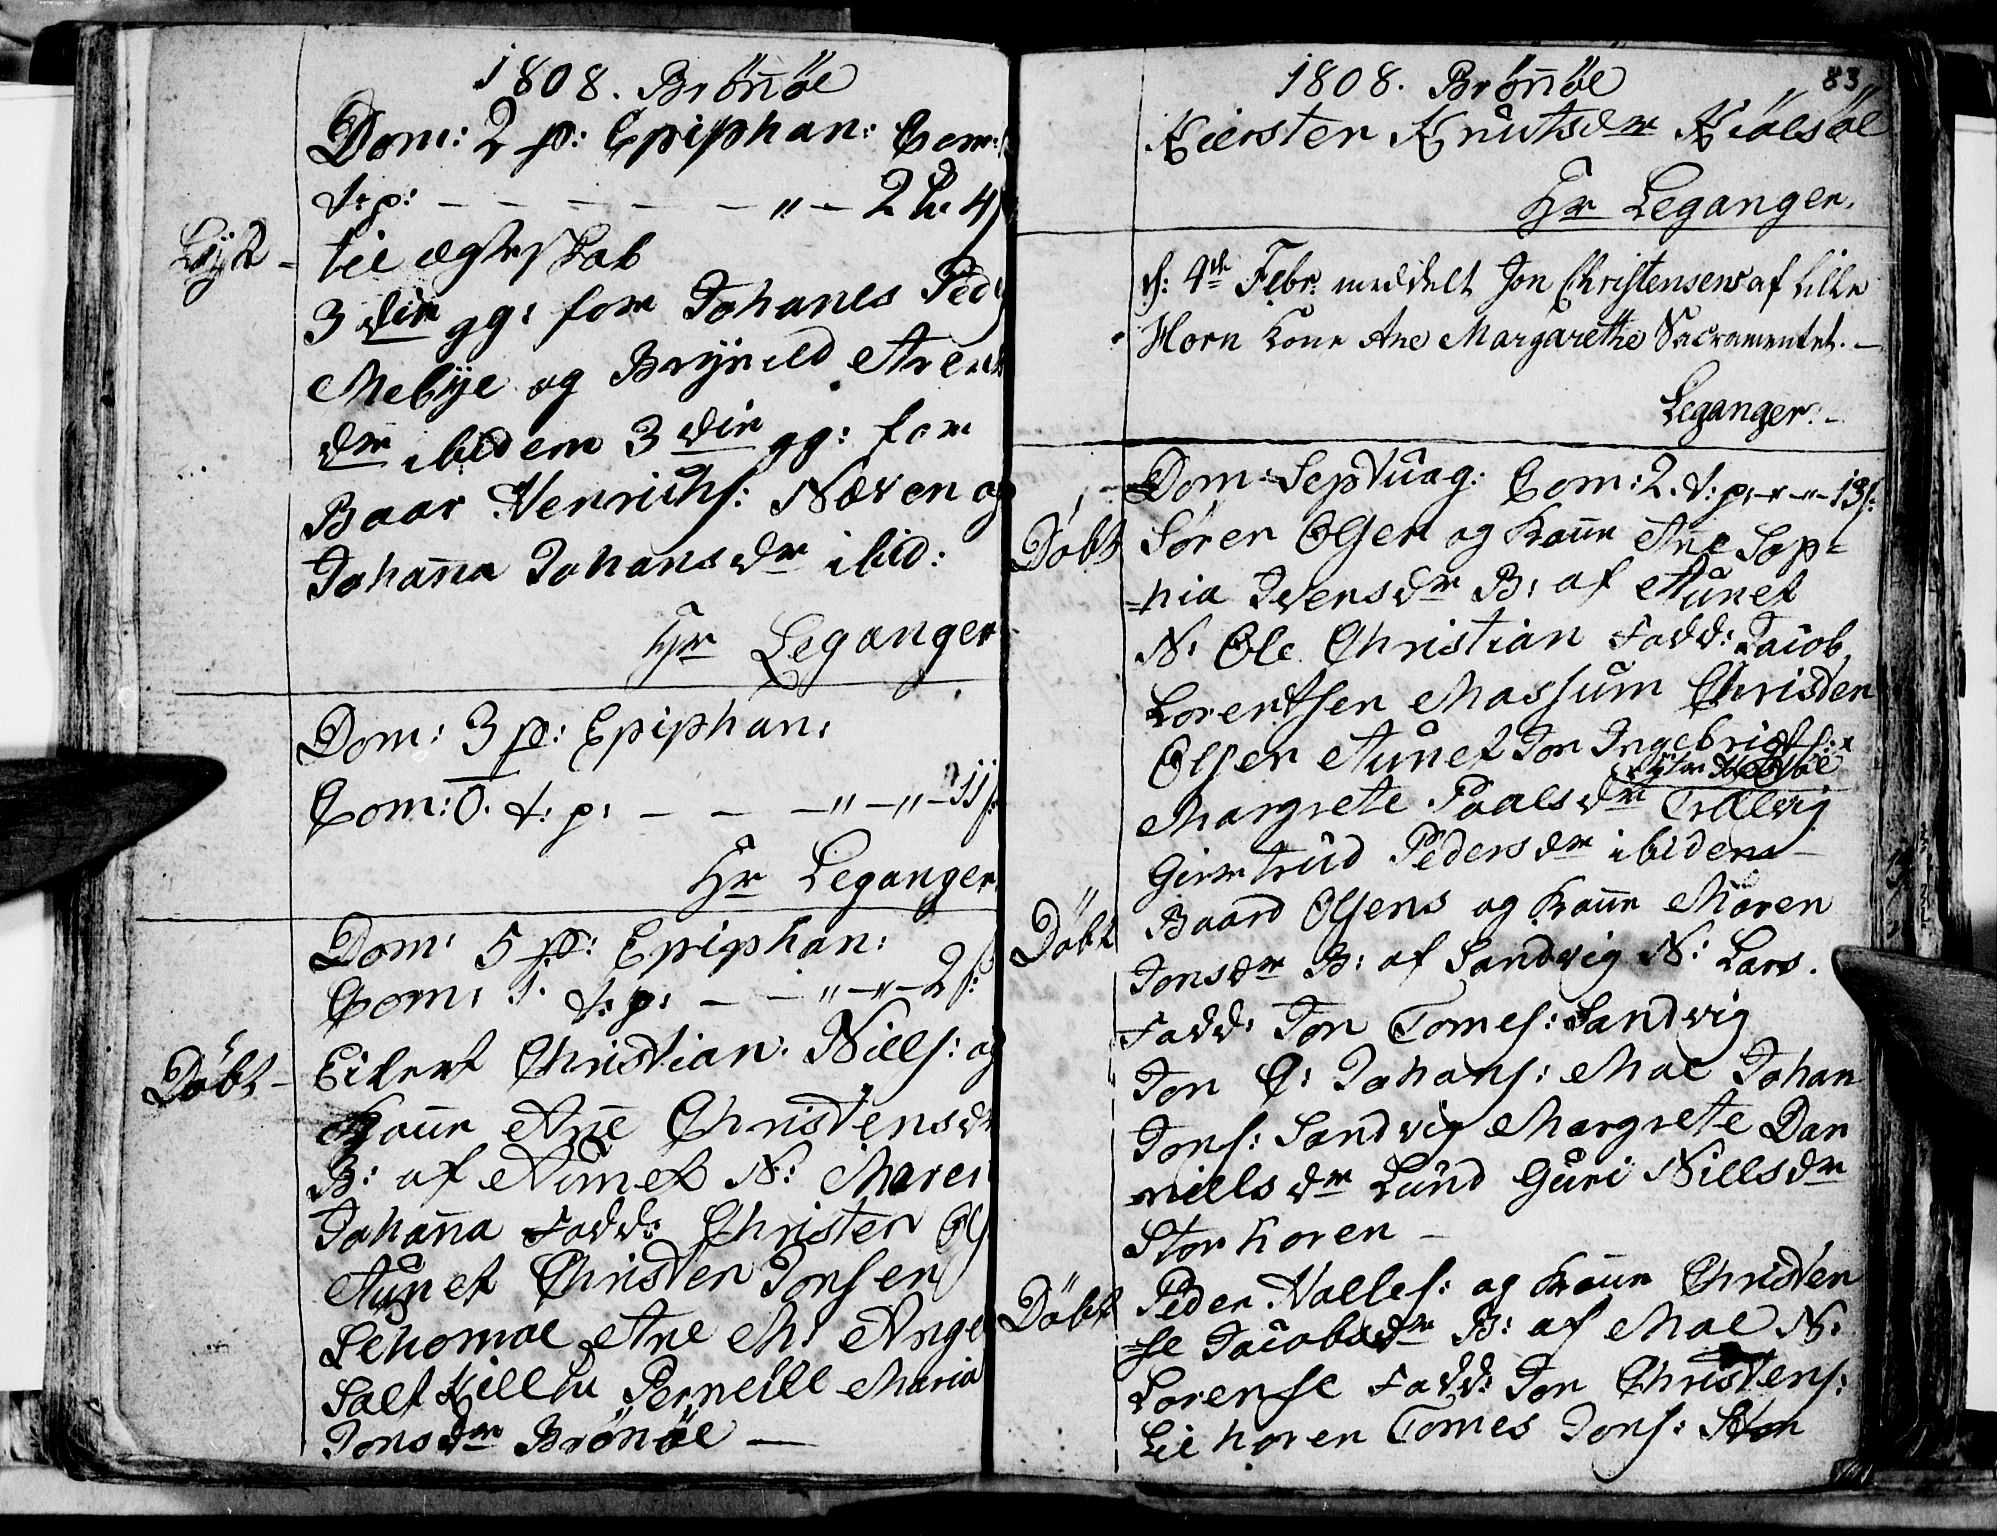 1808. Brönöe
Dom: 2 p: Epiphan: Com:
t: p: — — — — — — " — 2 4
Lyst — til ægteskab
3 die gg: for Johanes Ped
Mebÿe og Brÿnild Arent
dr ibidem 3 die gg: for
Baar Henrichs: Næven og
Johanna Johansdr ibid:
Hr Leganger
Dom: 3 p: Epiphan:
Com: 0. t: p: — — — " — " — 11 s
Hr Leganger
Dom: 5 p: Epiphan:
Com: 1. t: p: — — " — " — 2 s:
Döbt — Eilert Christian Niels: og
Kone Ane Christensdr
B: af Aunet N: Maren
Johanna Fadd: Christen Ols
Aunet Christen Jonsen
Ane M: Ange
Salt Pernelle Maria
Jonsdr Brönöe —
1808. Brönöe
83
Kiersten Knutsdr
Hr Leganger.
d: 4de Febr: meddelt Jon Christensens af Lille
Horn Kone Ane Margarethe Sacramentet. —
Leganger. —
Dom: Septuag: Com: 2. t: p: — " — 13 s:
Döbt Sören Olsen og Kone Ane Sop=
=hia Iversdr B: af Aunet
N: Ole Christian Fadd: Jacob
Lorentsen Mossum Christen
Olsen Aunet Jon Ingebrigts:
Margrete Paalsdr Tilrvig
Giertrud Pedersdr ibidem —
Döbt Baard Olsens og Kone Maren
Jonsdr B: af Sandvig N: Lars.
Fadd: Jon Tomes: Sandvig
Jon C: Johans: Moe Johan
Jons: Sandvig Margrete Dan
nielsdr Lund Guri Nillsdr
Storhoren —
Döbt Peder Halles: og Kone Christen
=se Jacobsdr B: af Moe N:
Lorense Fadd: Jon Christens:
Liehoren Tomes Jons: Stor